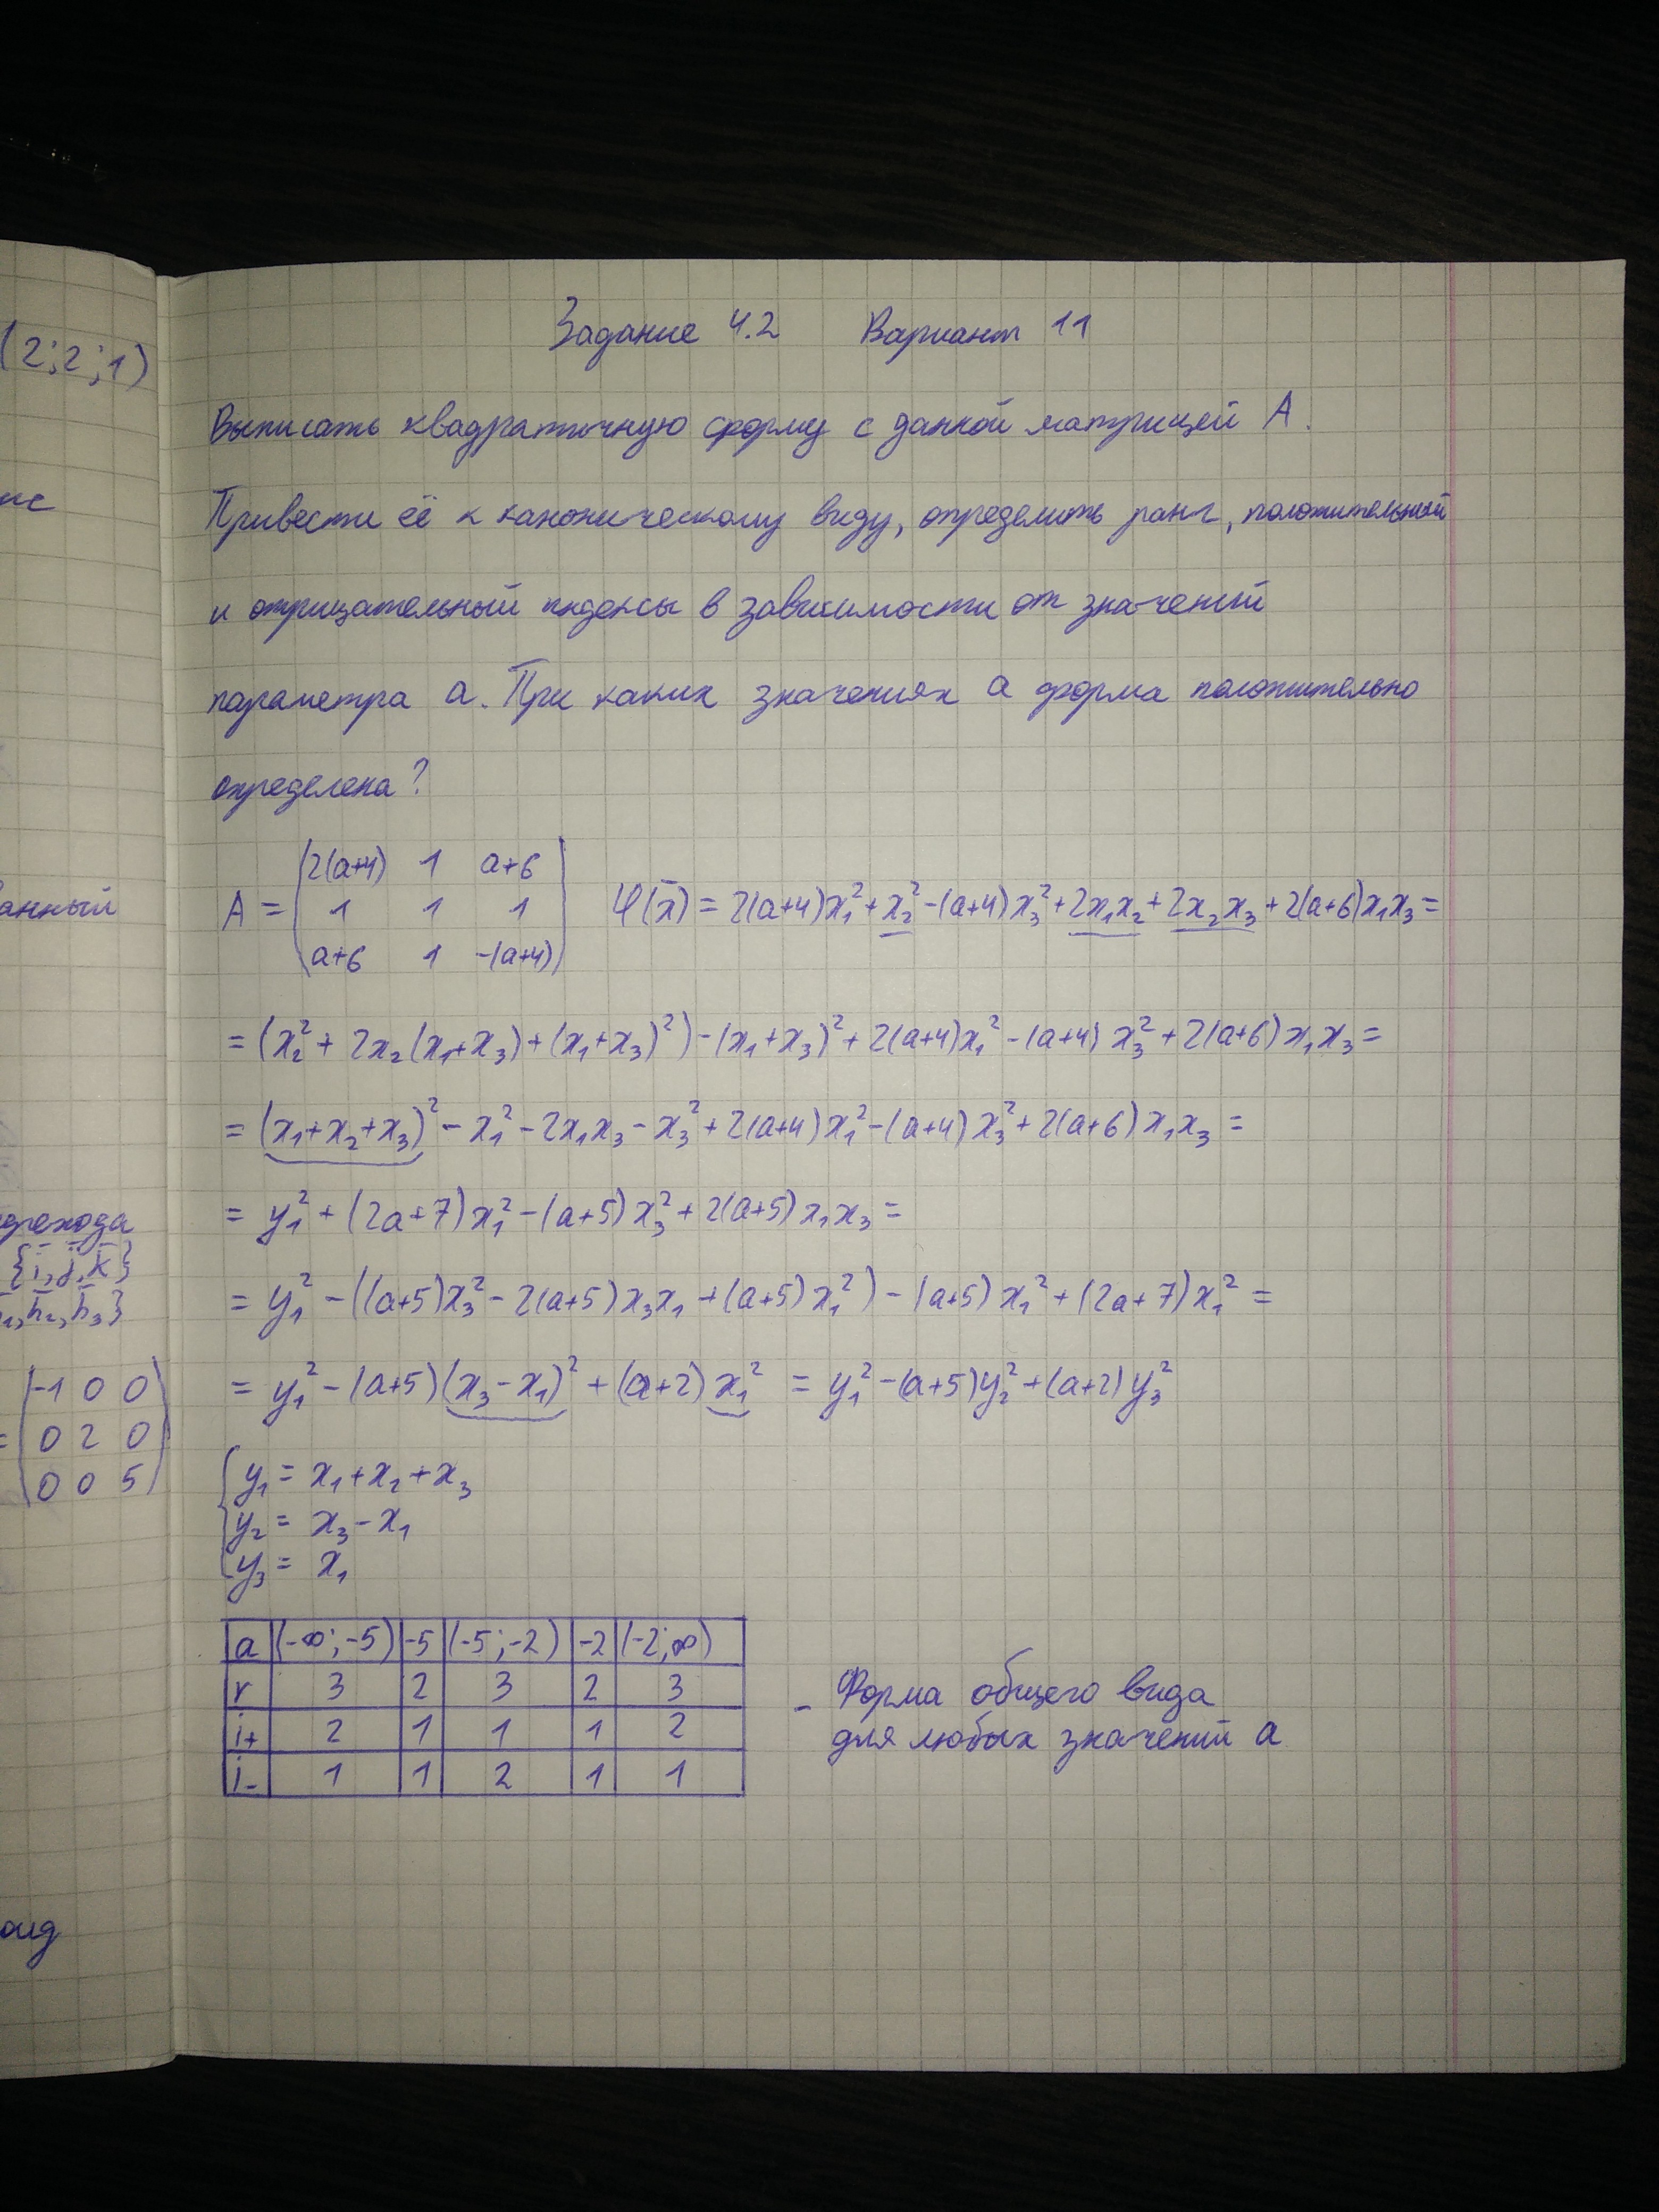 (2;2;1)
анный
{i,j,k}
(-1 0 0
0 2 0
0 0 5)
Задание 4.2 Вариант 11
Выписать квадратичную форму с данной матрицей А.
Привести её к каноническому виду, определить ранг, положительный
и отрицательный индексы в зависимости от значений
параметра а. При каких значениях а форма положительно
определена?
A = (2(a+4) 1 a+6
1 1 1
a+6 1 -(a+4)) φ(x̄) = 2(a+4)x₁² + x₂² - (a+4)x₃² + 2x₁x₂ + 2x₂x₃ + 2(a+6)x₁x₃ =
= (x₂² + 2x₂(x₁+x₃) + (x₁+x₃)²) - (x₁+x₃)² + 2(a+4)x₁² - (a+4)x₃² + 2(a+6)x₁x₃ =
= (x₁+x₂+x₃)² - x₁² - 2x₁x₃ - x₃² + 2(a+4)x₁² - (a+4)x₃² + 2(a+6)x₁x₃ =
= y₁² + (2a+7)x₁² - (a+5)x₃² + 2(a+5)x₁x₃ =
= y₁² - ((a+5)x₃² - 2(a+5)x₃x₁ + (a+5)x₁²) - (a+5)x₁² + (2a+7)x₁² =
= y₁² - (a+5)(x₃-x₁)² + (a+2)x₁² = y₁² - (a+5)y₂² + (a+2)y₃²
{y₁ = x₁+x₂+x₃
y₂ = x₃-x₁
y₃ = x₁
a (-∞;-5) -5 (-5;-2) -2 (-2;∞)
r 3 2 3 2 3
i₊ 2 1 1 1 2
i₋ 1 1 2 1 1
- Форма общего вида
для любых значений а